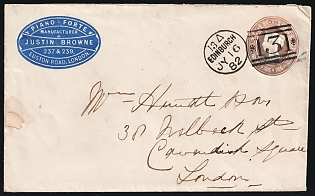 PIANO-FORTE
MANUFACTURER
JUSTIN BROWNE
237 & 239,
EUSTON ROAD, LONDON.
131 A
EDINBURGH
JY 6
82
131
Welbeck St
Cavendish Square
London